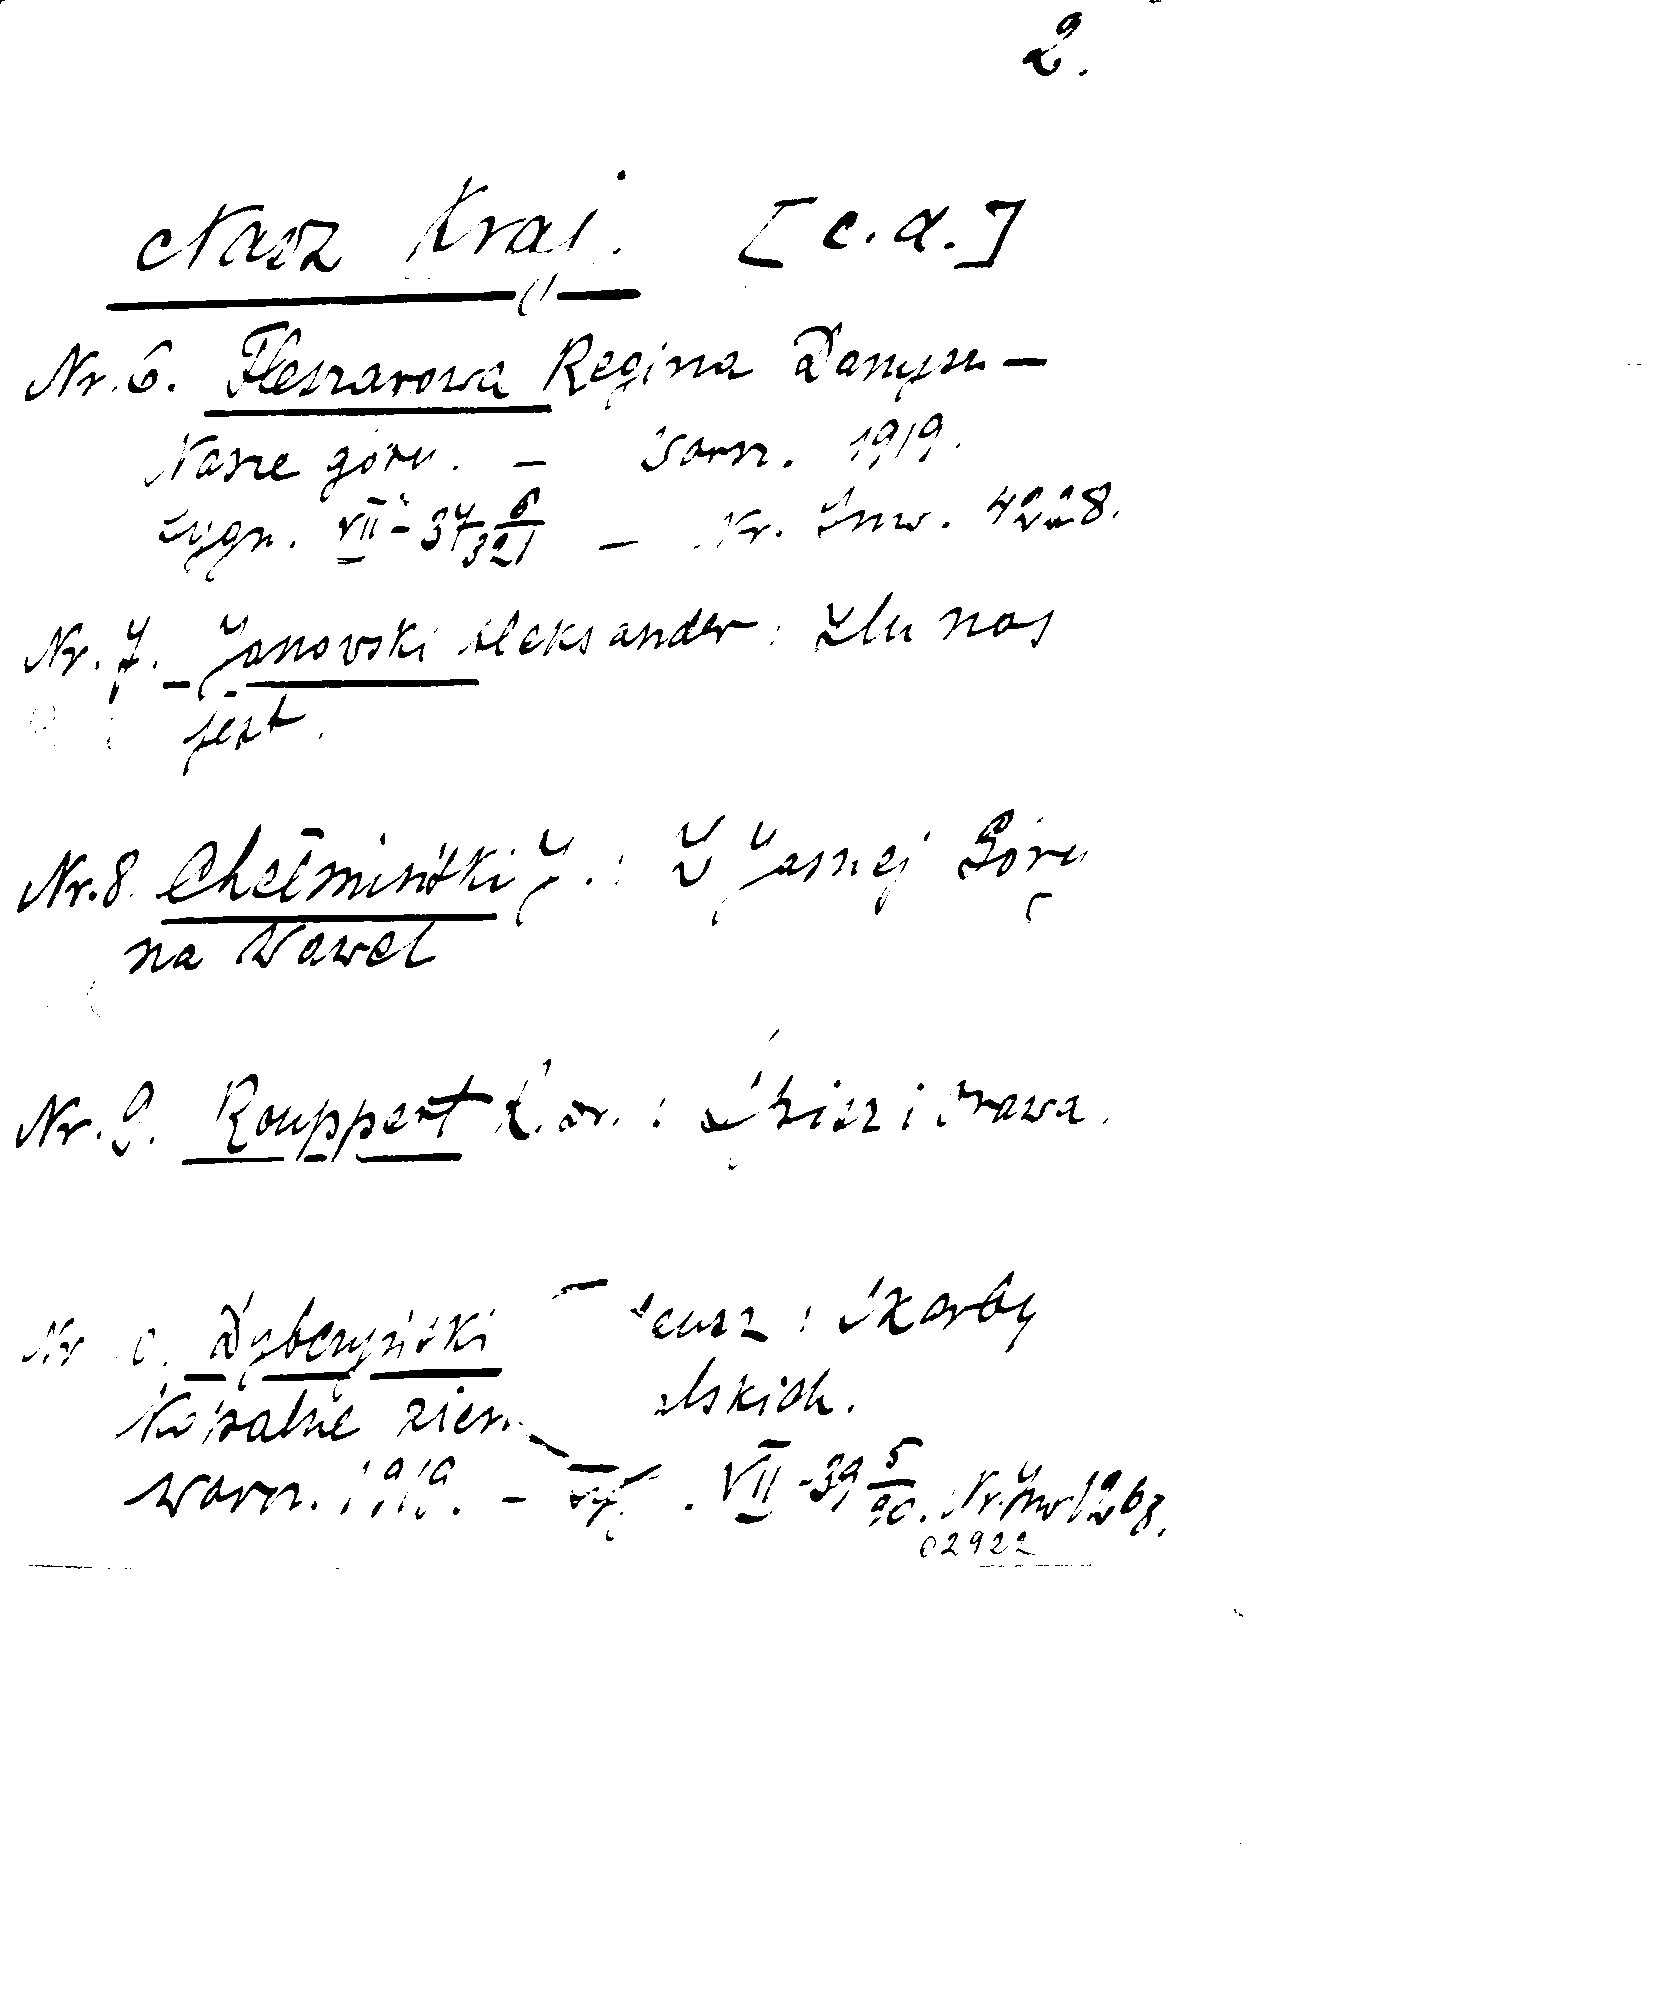 2.
Nasz Kraj. [c.d.]
Nr. 6. Fleszarowa Regina Danysz —
Nasze góry. — Warsz. 1919.
Sygn. VII - 37 6/321 — Nr. Inw. 4228.
Nr. 7. Janowski Aleksander: Ilu nas
jest.
Nr. 8. Chełmiński J.: Z Jasnej Góry
na Wawel
Nr. 9. Rouppert K. Dr.: Spisz i Orawa.
Nr Dybczyński : Skarby
Kopalne ziem
Warsz. 1919. - . VII - 39 5/90. Nr. Inw
02922